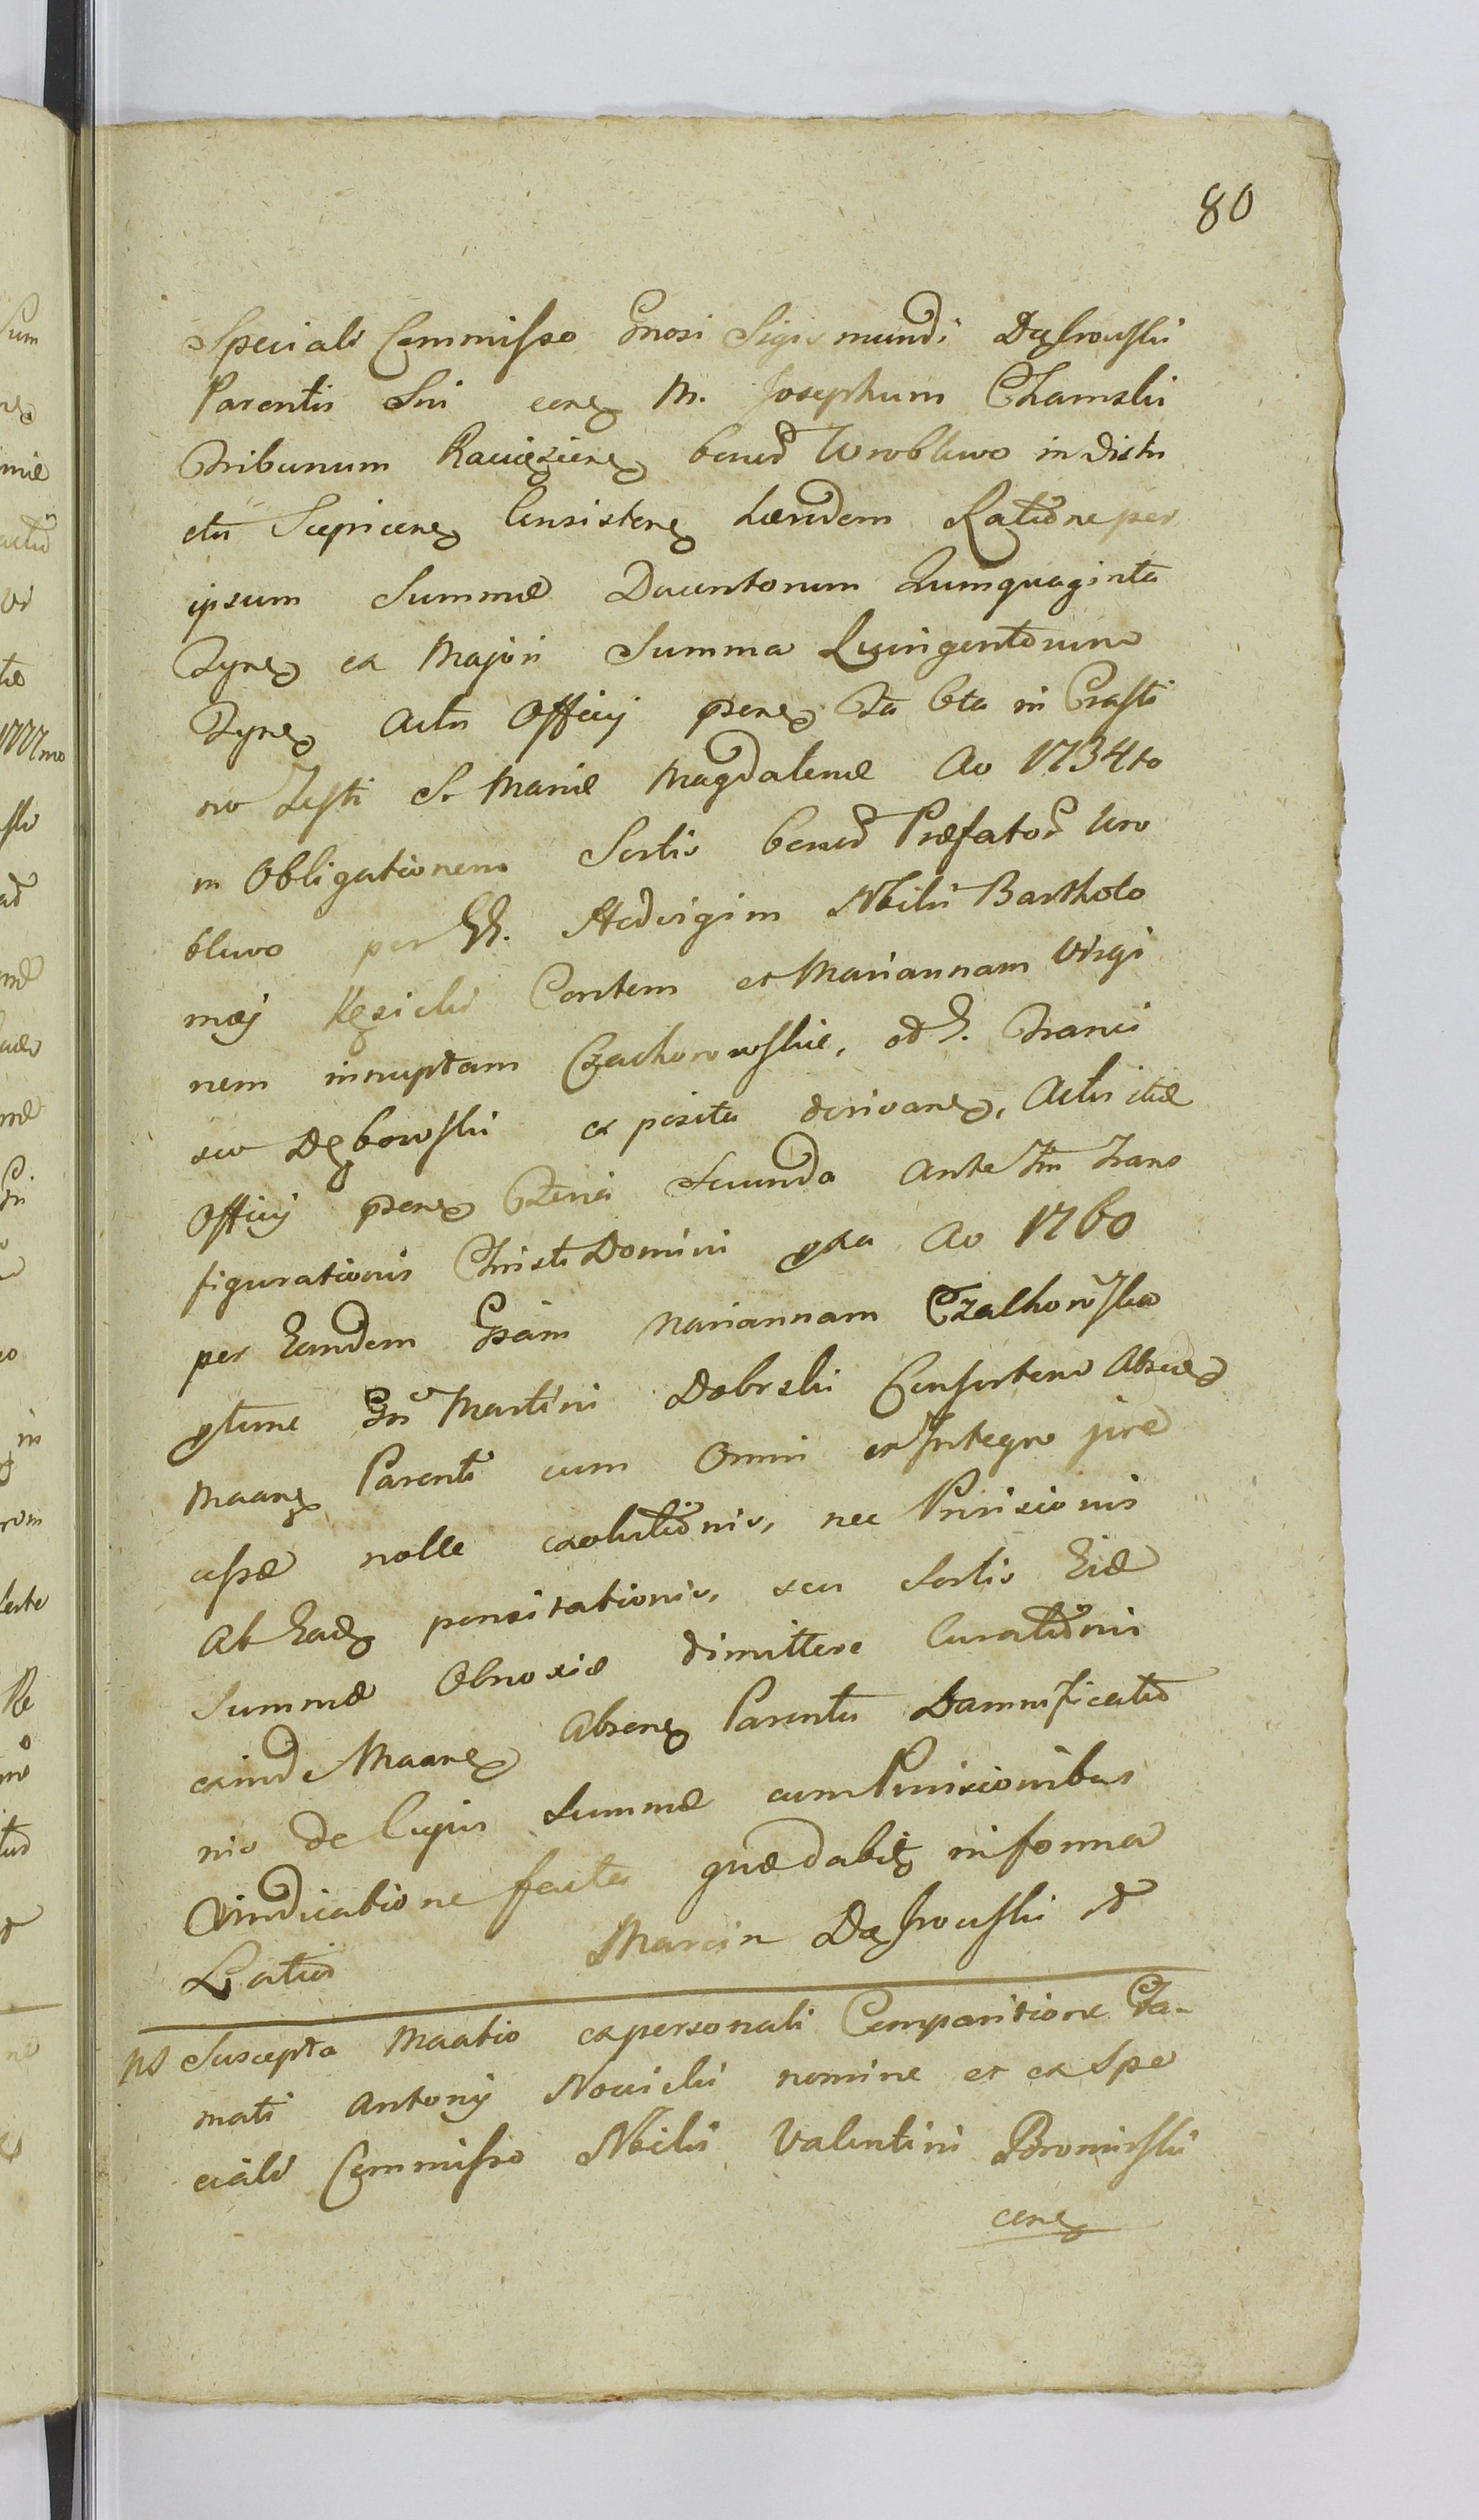 80
Speciali Commisso Gnosi Sigismundi Dąbrowski
Parentis Sui cone M. Josephum Chamski
Tribunum Raciążiene bonor Wroblewo in Distri
ctu Siepicene Consistene Laendem Ratione per
ipsum Summæ Ducentorum Quinquaginta
Tyne ex Majori Summa Quingentorum
Tyne Actu Officij psene Fa Cta in Crasti
no Festi S. Mariæ Magdalenæ Ao 1734to
in Obligationem Sortis bonor Præfator Wro
blewo per GG. Hedvigim Nbilis Bartholo
mæj Kęsicki Contem et Mariannam Virgi
nem innuptam Czachorowskie, od G. Franci
sco Dębowski ex posita derivane, Actu itæ
Officij psene Feria Secunda Ante Fm Trans
figurationis Christi Domini pxa Ao 1760
per Eandem Gsam Mariannam Czachorowska
ptune Gn Martini Dobrski Consortem Absene
Maane Parenti cum Omni et Integro jure
cessæ nolle exolutionis, nec Provisionis
Ab Eade pensitationis, seu Sortis Eidæ
Summæ Obnoxiæ dimittere Curationis
exinde Maane Absene Parentis Damnificatio
nis de Cujus Summæ cum Provisionibus
Vindicatione facta quæ dabit in forma
Latiori Marcin Dąbrowski
NS Suscepta Maatio ex personali Comparitione Fa-
mati Antonij Nowicki nomine et ex Spe
ciali Commisso Nbilis Valentini Bromirski
cone